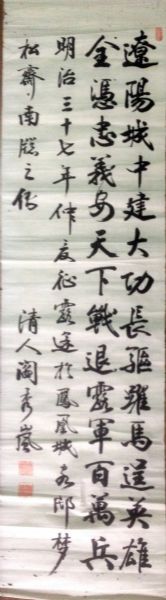 遼陽城中建大功長驅躍馬逞英雄
全憑忠義安天下戰退露軍百萬兵
明治三十七年仲夏征露途於鳳凰城客邸梦
松齋南牕之傍
清人閻秀嵐